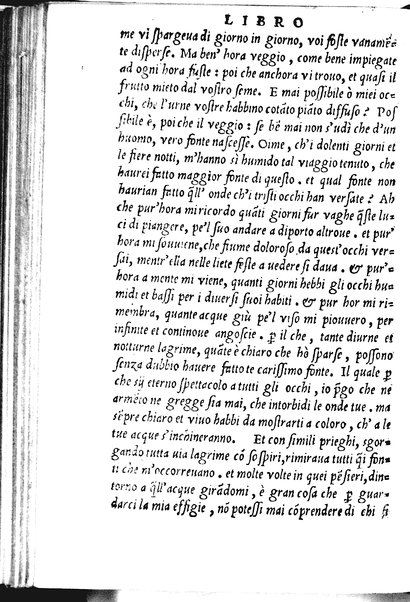 LIBRO
me vi spargeua di giorno in giorno, voi foste vanamē-
te disperse. Ma ben' hora veggio, come bene impiegate
ad ogni hora fuste: poi che anchora vi trouo, et quasi il
frutto mieto dal vostro seme. E mai possibile ò miei oc-
chi, che l'urne vostre habbino cotāto piāto diffuso? Pos
sibile è, poi che il veggio: se bē mai non s'udì che d'un
huomo, vero fonte nascesse. Oime, ch'i dolenti giorni et
le fiere notti, m'hanno sì humido tal viaggio tenuto, che
haurei fatto maggior fonte di questo. et qual fonte non
haurian fatto q̄ll' onde ch'i tristi occhi han versate? Ah
che pur'hora mi ricordo quāti giorni fur vaghe q̄ste lu
ci di piangere, pe'l suo andare a diporto altroue. et pur'
hora mi souuiene, che fiume doloroso da quest'occhi ver-
sai, mentr'ella nelle liete feste a uedere si daua. & pur'
hora a mente mi viene, quanti giorni hebbi gli occhi hu-
midi et bassi per i diuersi suoi habiti. & pur hor mi ri-
membra, quante acque giù pe'l viso mi piouuero, per
infinite et continoue angoscie. ꝑ il che, tante diurne et
notturne lagrime, quāte è chiaro che hò sparse, possono
senza dubbio hauere fatto te carissimo fonte. Il quale ꝑ
che sij eterno spettacolo a tutti gli occhi, io p̄go che ne
armēto ne gregge sia mai, che intorbidi le onde tue. ma
sēpre chiaro et viuo habbi da mostrarti a coloro, ch'a le
tue acque s'inchineranno. Et con simili prieghi, sgor-
gando tutta uia lagrime cō sospiri, rimiraua tutti q̄i fon-
ti che m'occorreuano. et molte volte in quei pēsieri, din-
torno a q̄ll'acque girādomi, è gran cosa che ꝑ guar-
darci la mia effigie, nō potessi mai cōprendere di chi si